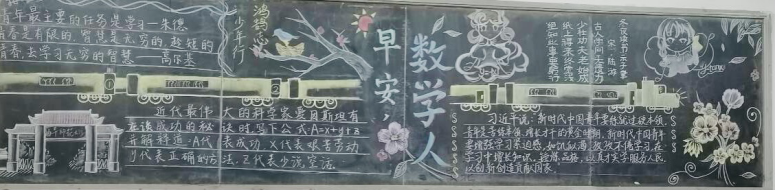 青年最主要的任务是学习—朱德
青春是有限的,智慧是无穷的,趁短的
青春,去学习无穷的智慧——高尔基
少年行
鸿鹄志
近代最伟大的科学家爱因斯坦有
在谈成功的秘诀时,写下公式A=x+y+z
并解释道:A代表成功 X代表艰苦劳动
y代表正确的方法,Z代表少说空话
早安,
数学人
冬夜读书示子聿
(宋)陆游
古人学问无遗力
少壮工夫老始成
纸上得来终觉浅
绝知此事要躬行
习近平说:新时代中国青年要练就过硬本领,
青年是苦练本领、增长才干的黄金时期。新时代中国青年
要增强学习紧迫感,如饥似渴、孜孜不倦学习,在
学习中增长知识、锤炼品格,以真才实学服务人民,
以创新创造贡献国家。